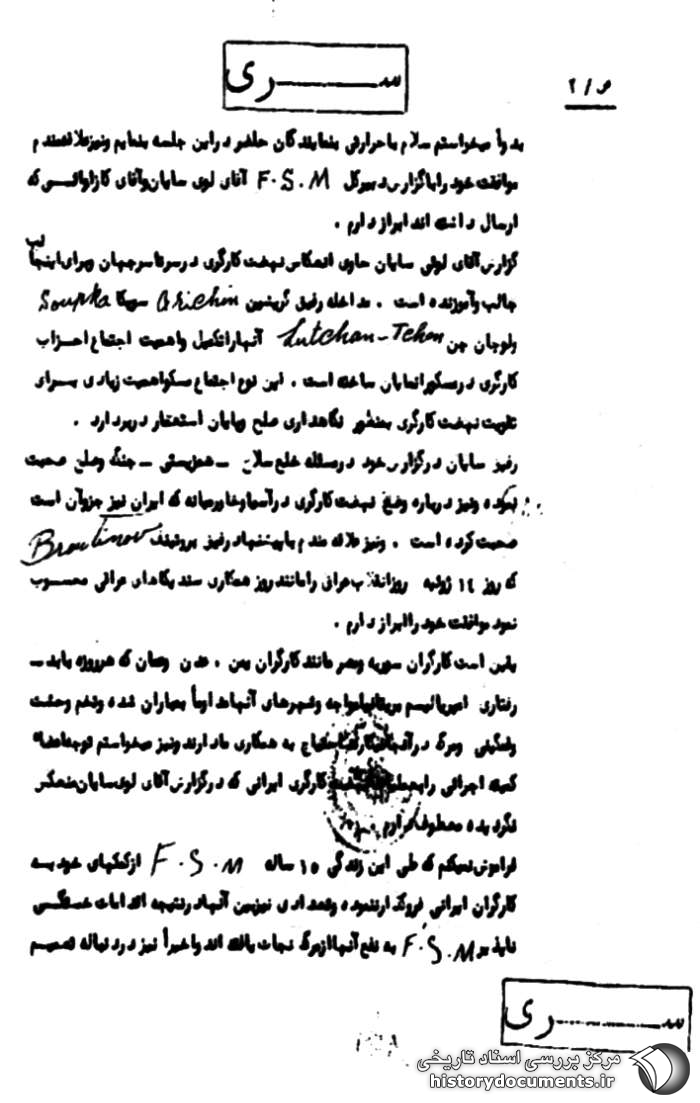 ص / ۲
ســـــری
بدواً میخواستم سلام با حرارتی بنمایندگان حاضر در این جلسه بنمایم ونیز علاقمندم
موافقت خود را با گزارش دبیرکل F.S.M آقای لوی سایان وآقای که
ارسال داشته اند ابراز دارم .
گزارش آقای لوئی سایان حاوی انعکاس نهضت کارگری در سرتاسر جهان وبرای اینجانب
جالب وآموزنده است . مداخله رفیق گریشین Grichin سوپکا Soupka
ولوچان چن Lutchan-Tchen آنها را تشکیل واهمیت اجتماع احـزاب
کارگری در مسکو را نمایان ساخته است . این نوع اجتماع مسکو اهمیت زیادی بـرای
تقویت نهضت کارگری بمنظور نگاهداری صلح وپایان استعمار دربردارد .
رفیق سایان در گزارش خود در مسئله خلع سلاح - همزیستی - جنگ وصلح صحبت
نموده ونیز درباره وضع نهضت کارگری در آسیا وخاورمیانه که ایران نیز جزوآن است
صحبت کرده است . ونیز علاقه مندم با پیشنهاد رفیق Broutinov
که روز ۱٤ ژوئیه روز انقلاب عراق را مانند روز همکاری سندیکاهای عراقی محسـوب
نمود موافقت خود را ابراز دارم .
یقین است کارگران سوریه ومصر مانند کارگران یمن . عدن وعمان که هر روزه با بد -
رفتاری امپریالیسم بریتانیا مواجه وشهرهای آنها دائماً بمباران شده وتخم وحشت
ومرگ در آنجا به همکاری ما دارند ونیز میخواستم توجه اعضاء
کمیته اجرائی را نهضت کارگری ایرانی که در گزارش آقای لوی سایان منعکس
نگردیده معطوف دارم
فراموش نمیکنم که طی این زندگی ۱۵ ساله F.S.M از کمکهای خود بـه
کارگران ایرانی فروگذار ننموده وتعدادی نیز بین آنها در نتیجه اقدامات خستگـی
ناپذیر F.S.M به نفع آنها از مرگ نجات یافته اند واخیراً نیز در دنباله تصمیـم
ســـــری
مرکز بررسی اسناد تاریخی
historydocuments.ir